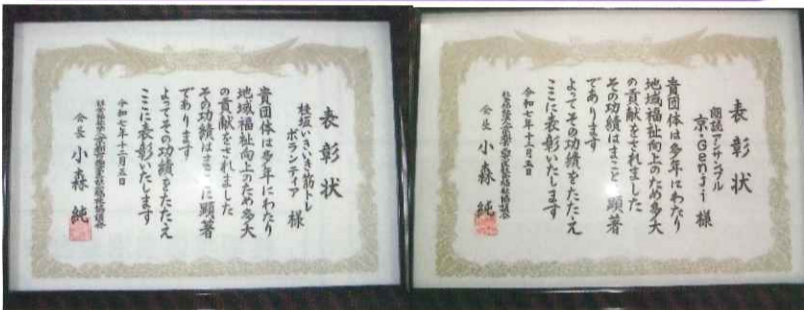 表彰状
桂坂いきいき筋トレ
ボランティア 様
貴団体は多年にわたり
地域福祉向上のため多大
の貢献をされました
その功績はまことに顕著
であります
よってその功績をたたえ
ここに表彰いたします
令和七年十二月五日
会長 小森 純
表彰状
朗読アンサンブル
京・Genji 様
貴団体は多年にわたり
地域福祉向上のため多大
の貢献をされました
その功績はまことに顕著
であります
よってその功績をたたえ
ここに表彰いたします
令和七年十二月五日
会長 小森 純